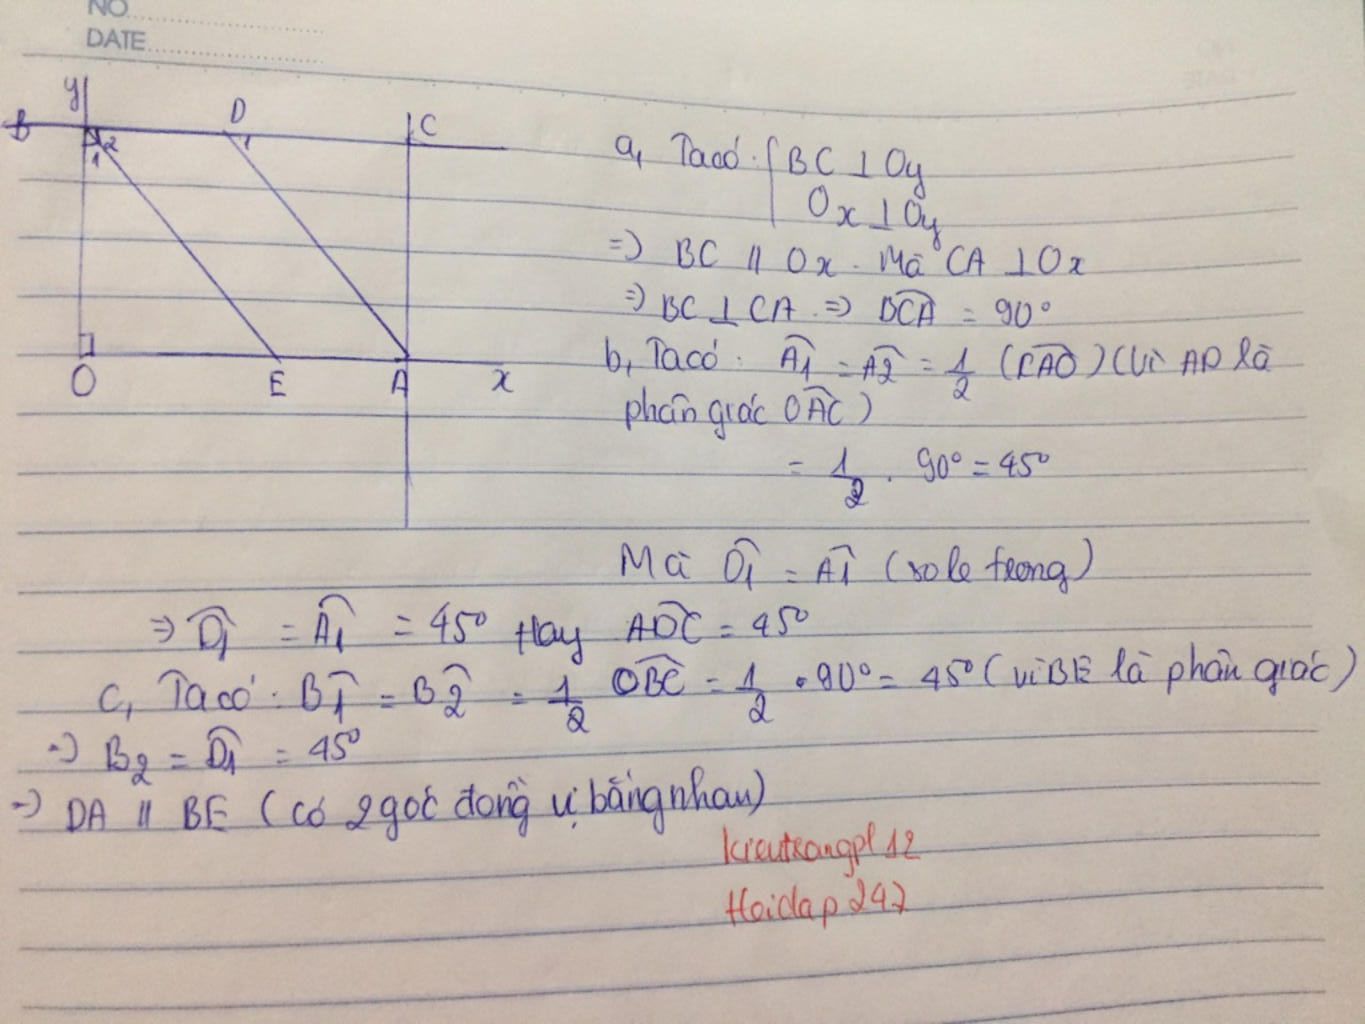 NO
DATE
y
B
D
C
1
2
1
O
E
A
x
a, Ta có: { BC ⊥ Oy
Ox ⊥ Oy
=> BC // Ox. Mà CA ⊥ Ox
=> BC ⊥ CA => \widehat{BCA} = 90°
b, Ta có: \widehat{A1} = \widehat{A2} = \frac{1}{2} (\widehat{CAO}) (Vì AD là
phân giác \widehat{OAC})
= \frac{1}{2} . 90° = 45°
Mà \widehat{D1} = \widehat{A1} (so le trong)
=> \widehat{D1} = \widehat{A1} = 45° Hay \widehat{ADC} = 45°
c, Ta có: \widehat{B1} = \widehat{B2} = \frac{1}{2} \widehat{OBC} = \frac{1}{2} . 90° = 45° (vì BE là phân giác)
=> B2 = \widehat{D1} = 45°
=> DA // BE (có 2 góc đồng vị bằng nhau)
kieutrangpl12
Hoidap247